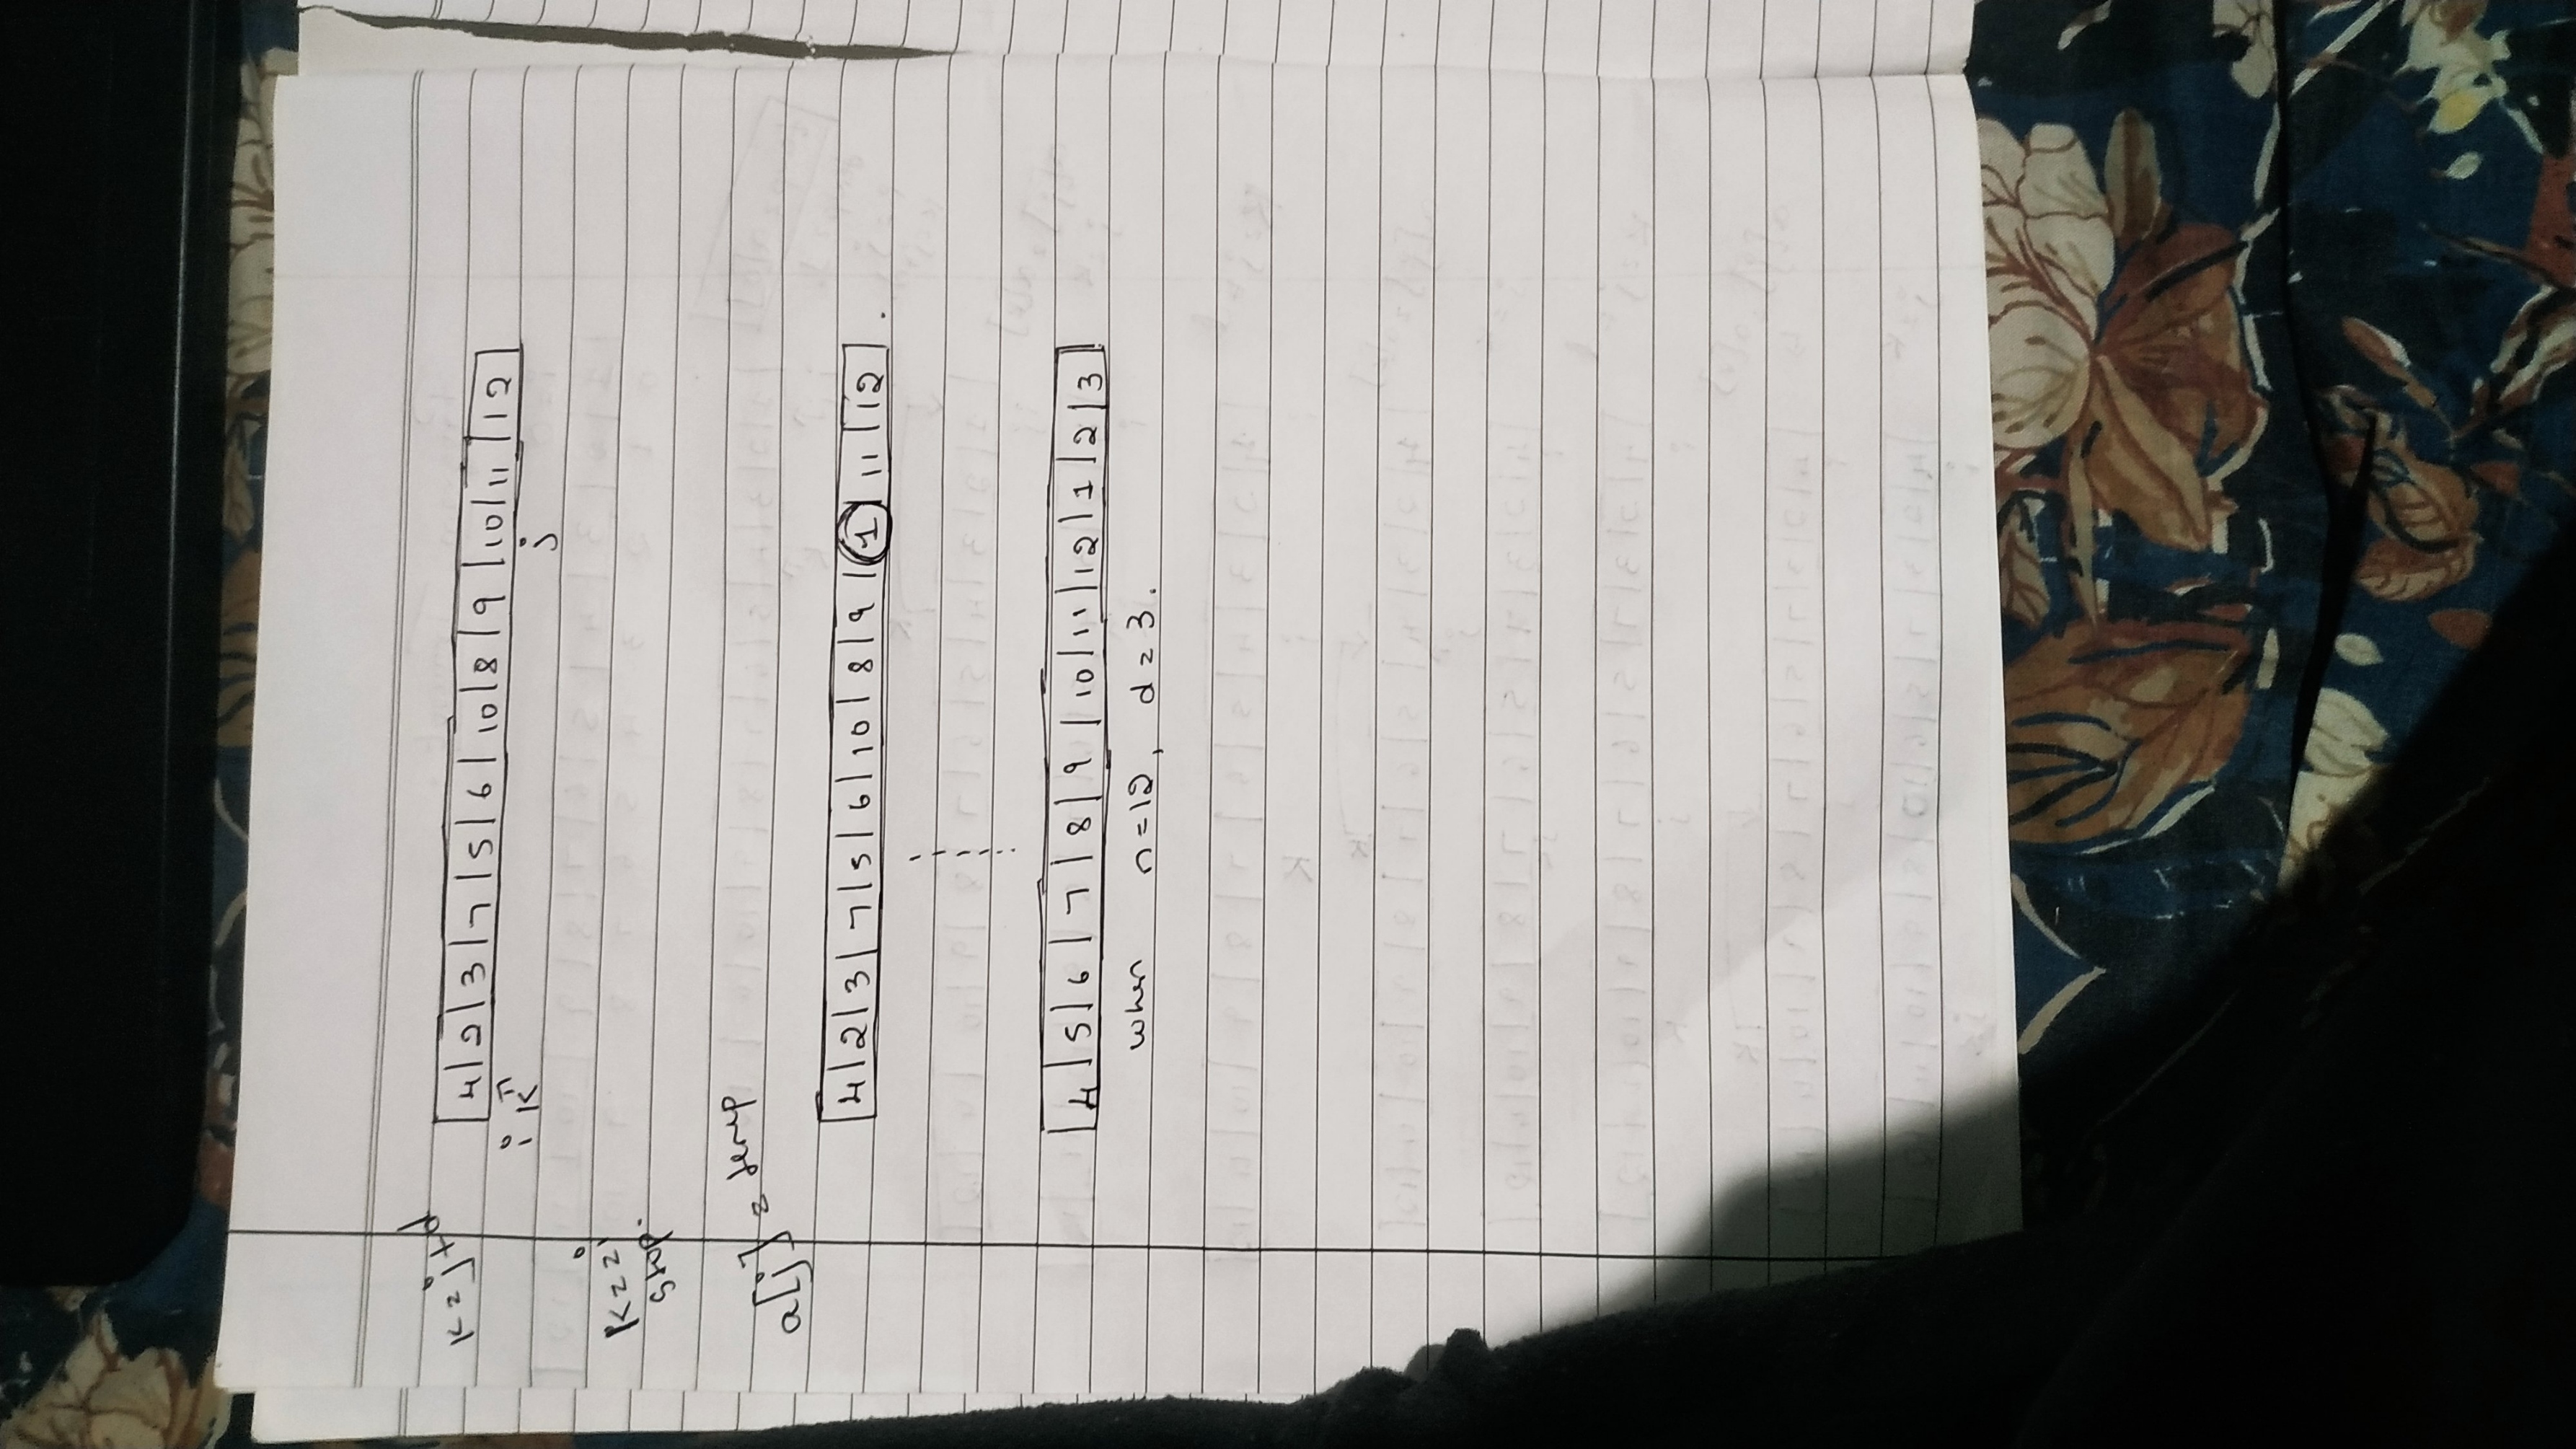 k = j + d
4 | 2 | 3 | 7 | 5 | 6 | 10 | 8 | 9 | 10 | 11 | 12
i k j
k = = i
stop.
a[j] = temp
4 | 2 | 3 | 7 | 5 | 6 | 10 | 8 | 9 | 1 | 11 | 12 .
4 | 5 | 6 | 7 | 8 | 9 | 10 | 11 | 12 | 1 | 2 | 3
when n = 12, d = 3.